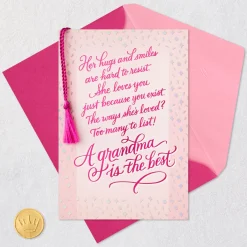 Her hugs and smiles
are hard to resist.
She loves you
just because you exist.
The ways she's loved?
Too many to list!
A grandma
is the best.